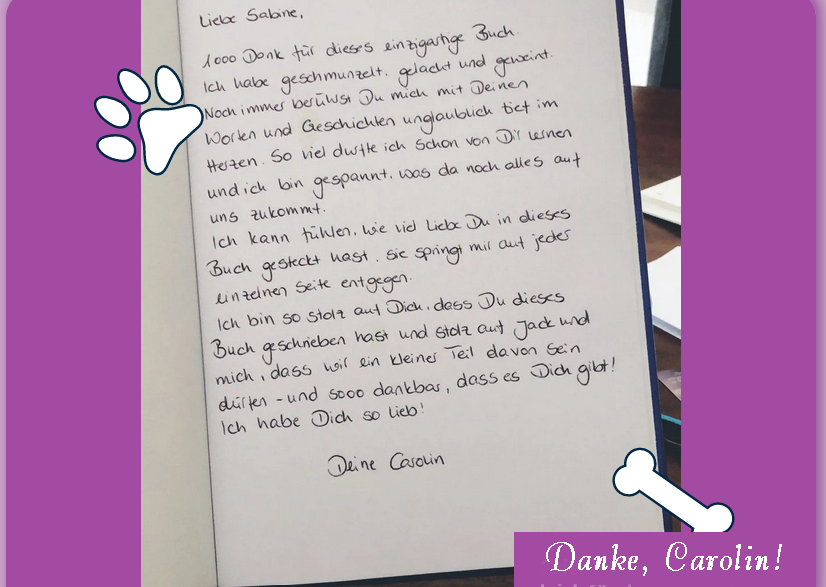 Liebe Sabine,
1000 Dank für dieses einzigartige Buch.
Ich habe geschmunzelt, gelacht und geweint.
Noch immer berührst Du mich mit Deinen
Worten und Geschichten unglaublich tief im
Herzen. So viel durfte ich schon von Dir lernen
und ich bin gespannt, was da noch alles auf
uns zukommt.
Ich kann fühlen, wie viel Liebe Du in dieses
Buch gesteckt hast, sie springt mir auf jeder
einzelnen Seite entgegen.
Ich bin so stolz auf Dich, dass Du dieses
Buch geschrieben hast und stolz auf Jack und
mich, dass wir ein kleiner Teil davon sein
dürfen - und sooo dankbar, dass es Dich gibt!
Ich habe Dich so lieb!
Deine Carolin
Danke, Carolin!